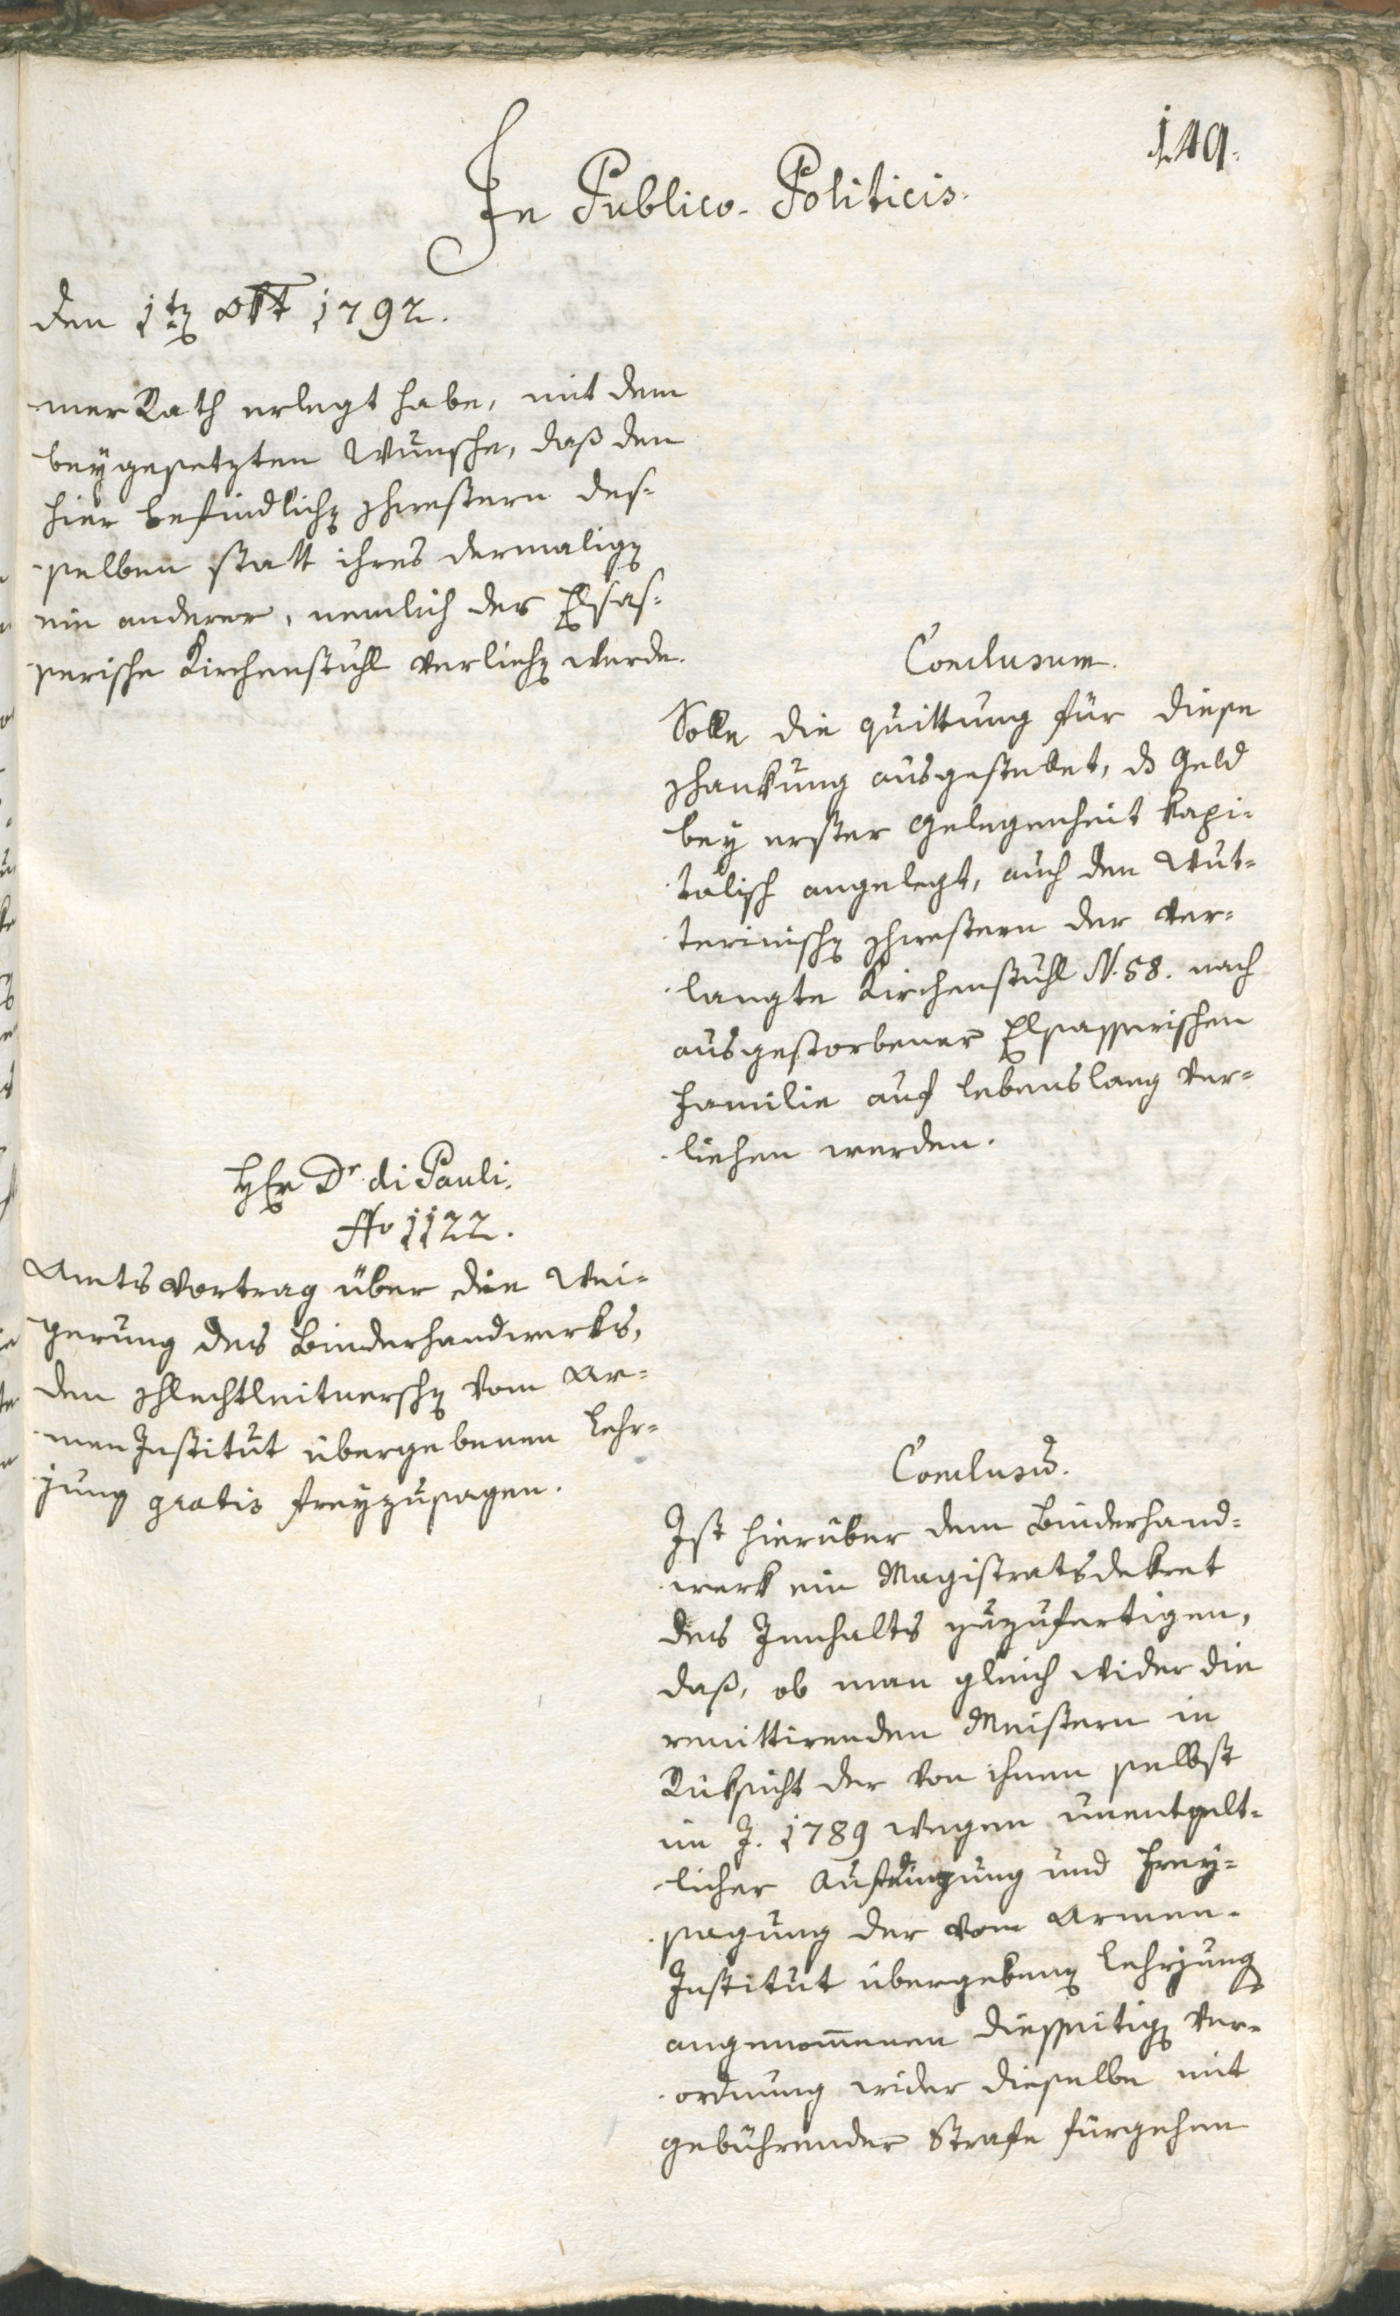 149.
In Publico-Politicis.
den 1ten Okt 1792.
mer Rath erlegt habe, mit dem
beygesetzten Wunsche, daß den
hier befindlichen Schwestern des-
selben statt ihres dermaligen
ein anderer, nemlich der Elsas-
serische Kirchenstuhl verliehen werde.
Conclusum.
Solle die Quittung für diese
Schankung ausgestellet, das Geld
bey erster Gelegenheit kapi-
talisch angelegt, auch den Wut-
terinischen Schwestern der ver-
langte Kirchenstuhl N. 58. nach
ausgestorbener Elsasserischen
Familie auf lebenslang ver-
liehen werden.
Herr Dr. di Pauli.
No 1122.
Amtsvortrag über die Wei-
gerung des Binderhandwerks,
den Schlechtleitnerschen vom Ar-
men Institut übergebenen Lehr-
jung gratis freyzusagen.
Conclusum.
Ist hierüber dem Binderhand-
werk ein Magistratsdekret
des Innhalts zuzufertigen,
daß, ob man gleich wider die
renittirenden Meistern in
Rüksicht der von ihnen selbst
im J. 1789 wegen unentgelt-
licher Aufdingung und Frey-
sagung der vom Armen-
Institut übergebenen Lehrjung
angenommenen diesseitigen Ver-
ordnung wider dieselbe mit
gebührender Strafe fürgehen